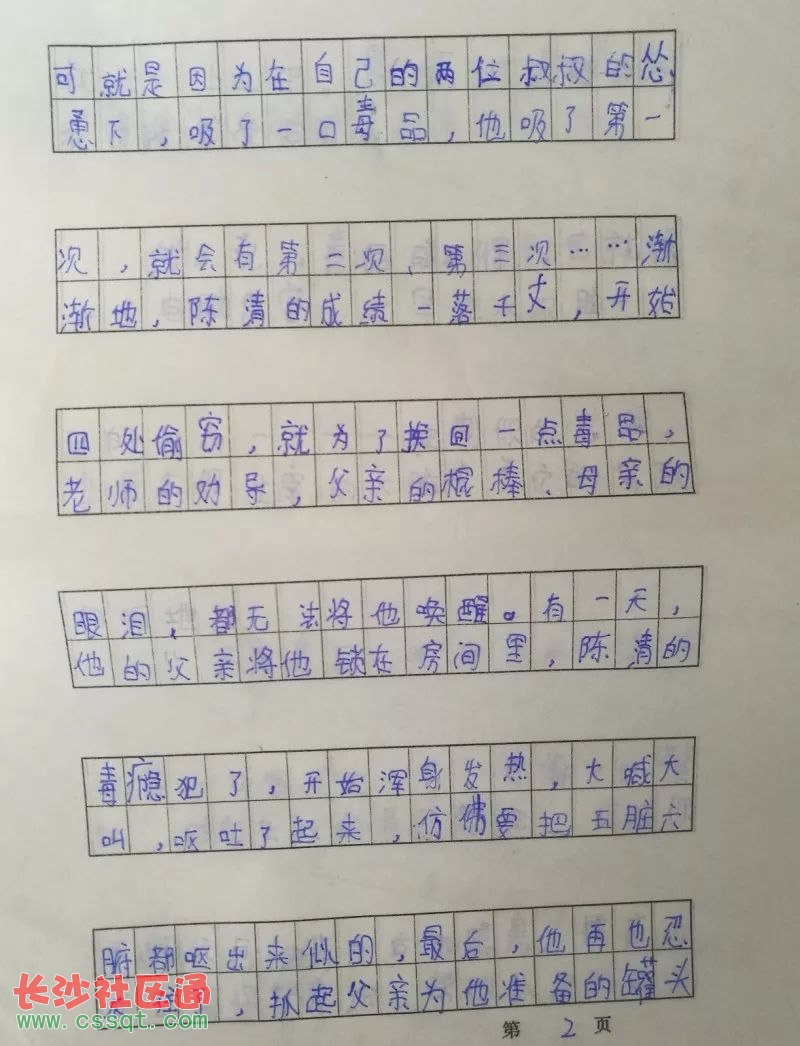 可就是因为在自己的两位叔叔的怂
恿下，吸了一口毒品，他吸了第一
次，就会有第二次、第三次……渐
渐地，陈清的成绩一落千丈，开始
四处偷窃，就为了换回一点毒品，
老师的劝导，父亲的棍棒、母亲的
眼泪，都无法将他唤醒。有一天，
他的父亲将他锁在房间里，陈清的
毒瘾犯了，开始浑身发热，大喊大
叫，呕吐了起来，仿佛要把五脏六
脏都呕出来似的，最后，他再也忍
，抓起父亲为他准备的罐头
长沙社区通
www.cssqt.com
第 2 页